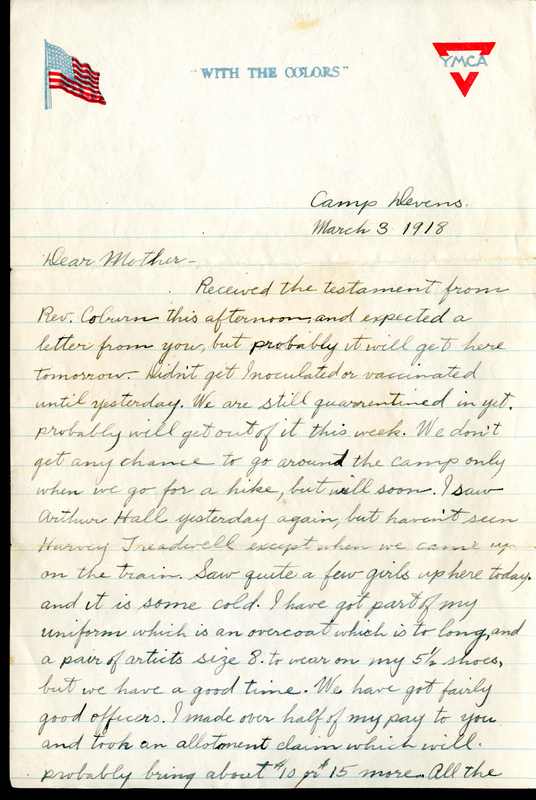 "WITH THE COLORS"
YMCA
Camp Devens.
March 3 1918
Dear Mother-
Received the testament from
Rev. Coburn this afternoon, and expected a
letter from you, but probably it will get here
tomorrow. Didn't get Inoculated or vaccinated
until yesterday. We are still quarrentined in yet.
probably will get out of it this week. We don't
get any chance to go around the camp only
when we go for a hike, but will soon. I saw
Arthur Hall yesterday again, but haven't seen
Harvey Treadwell except when we came up
on the train. Saw quite a few girls up here today.
and it is some cold. I have got part of my
uniform which is an overcoat which is to long, and
a pair of artics size 8. to wear on my 5½ shoes,
but we have a good time. We have got fairly
good officers. I made over half of my pay to you
and took an allotment claim which will.
probably bring about $10 or $15 more. All the